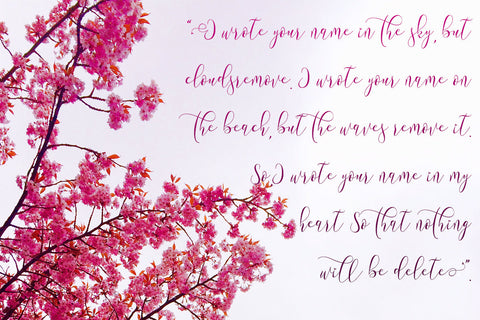 "I wrote your name in the sky, but
cloudsremove. I wrote your name on
the beach, but the waves remove it.
So, I wrote your name in my
heart So that nothing
will be delete".